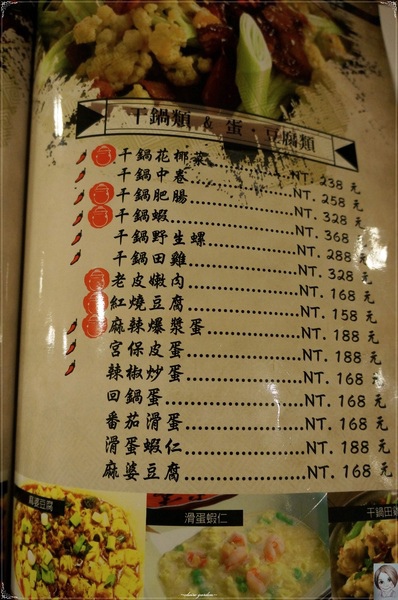 干鍋類 & 蛋．豆腐類
干鍋花椰菜......NT. 238 元
干鍋中卷......NT. 258 元
干鍋肥腸......NT. 328 元
干鍋蝦......NT. 368 元
干鍋野生螺......NT. 288 元
干鍋田雞......NT. 328 元
老皮嫩肉......NT. 168 元
紅燒豆腐......NT. 158 元
麻辣爆漿蛋......NT. 188 元
宮保皮蛋......NT. 188 元
辣椒炒蛋......NT. 168 元
回鍋蛋......NT. 168 元
番茄滑蛋......NT. 168 元
滑蛋蝦仁......NT. 188 元
麻婆豆腐......NT. 168 元
麻婆豆腐
滑蛋蝦仁
干鍋田雞